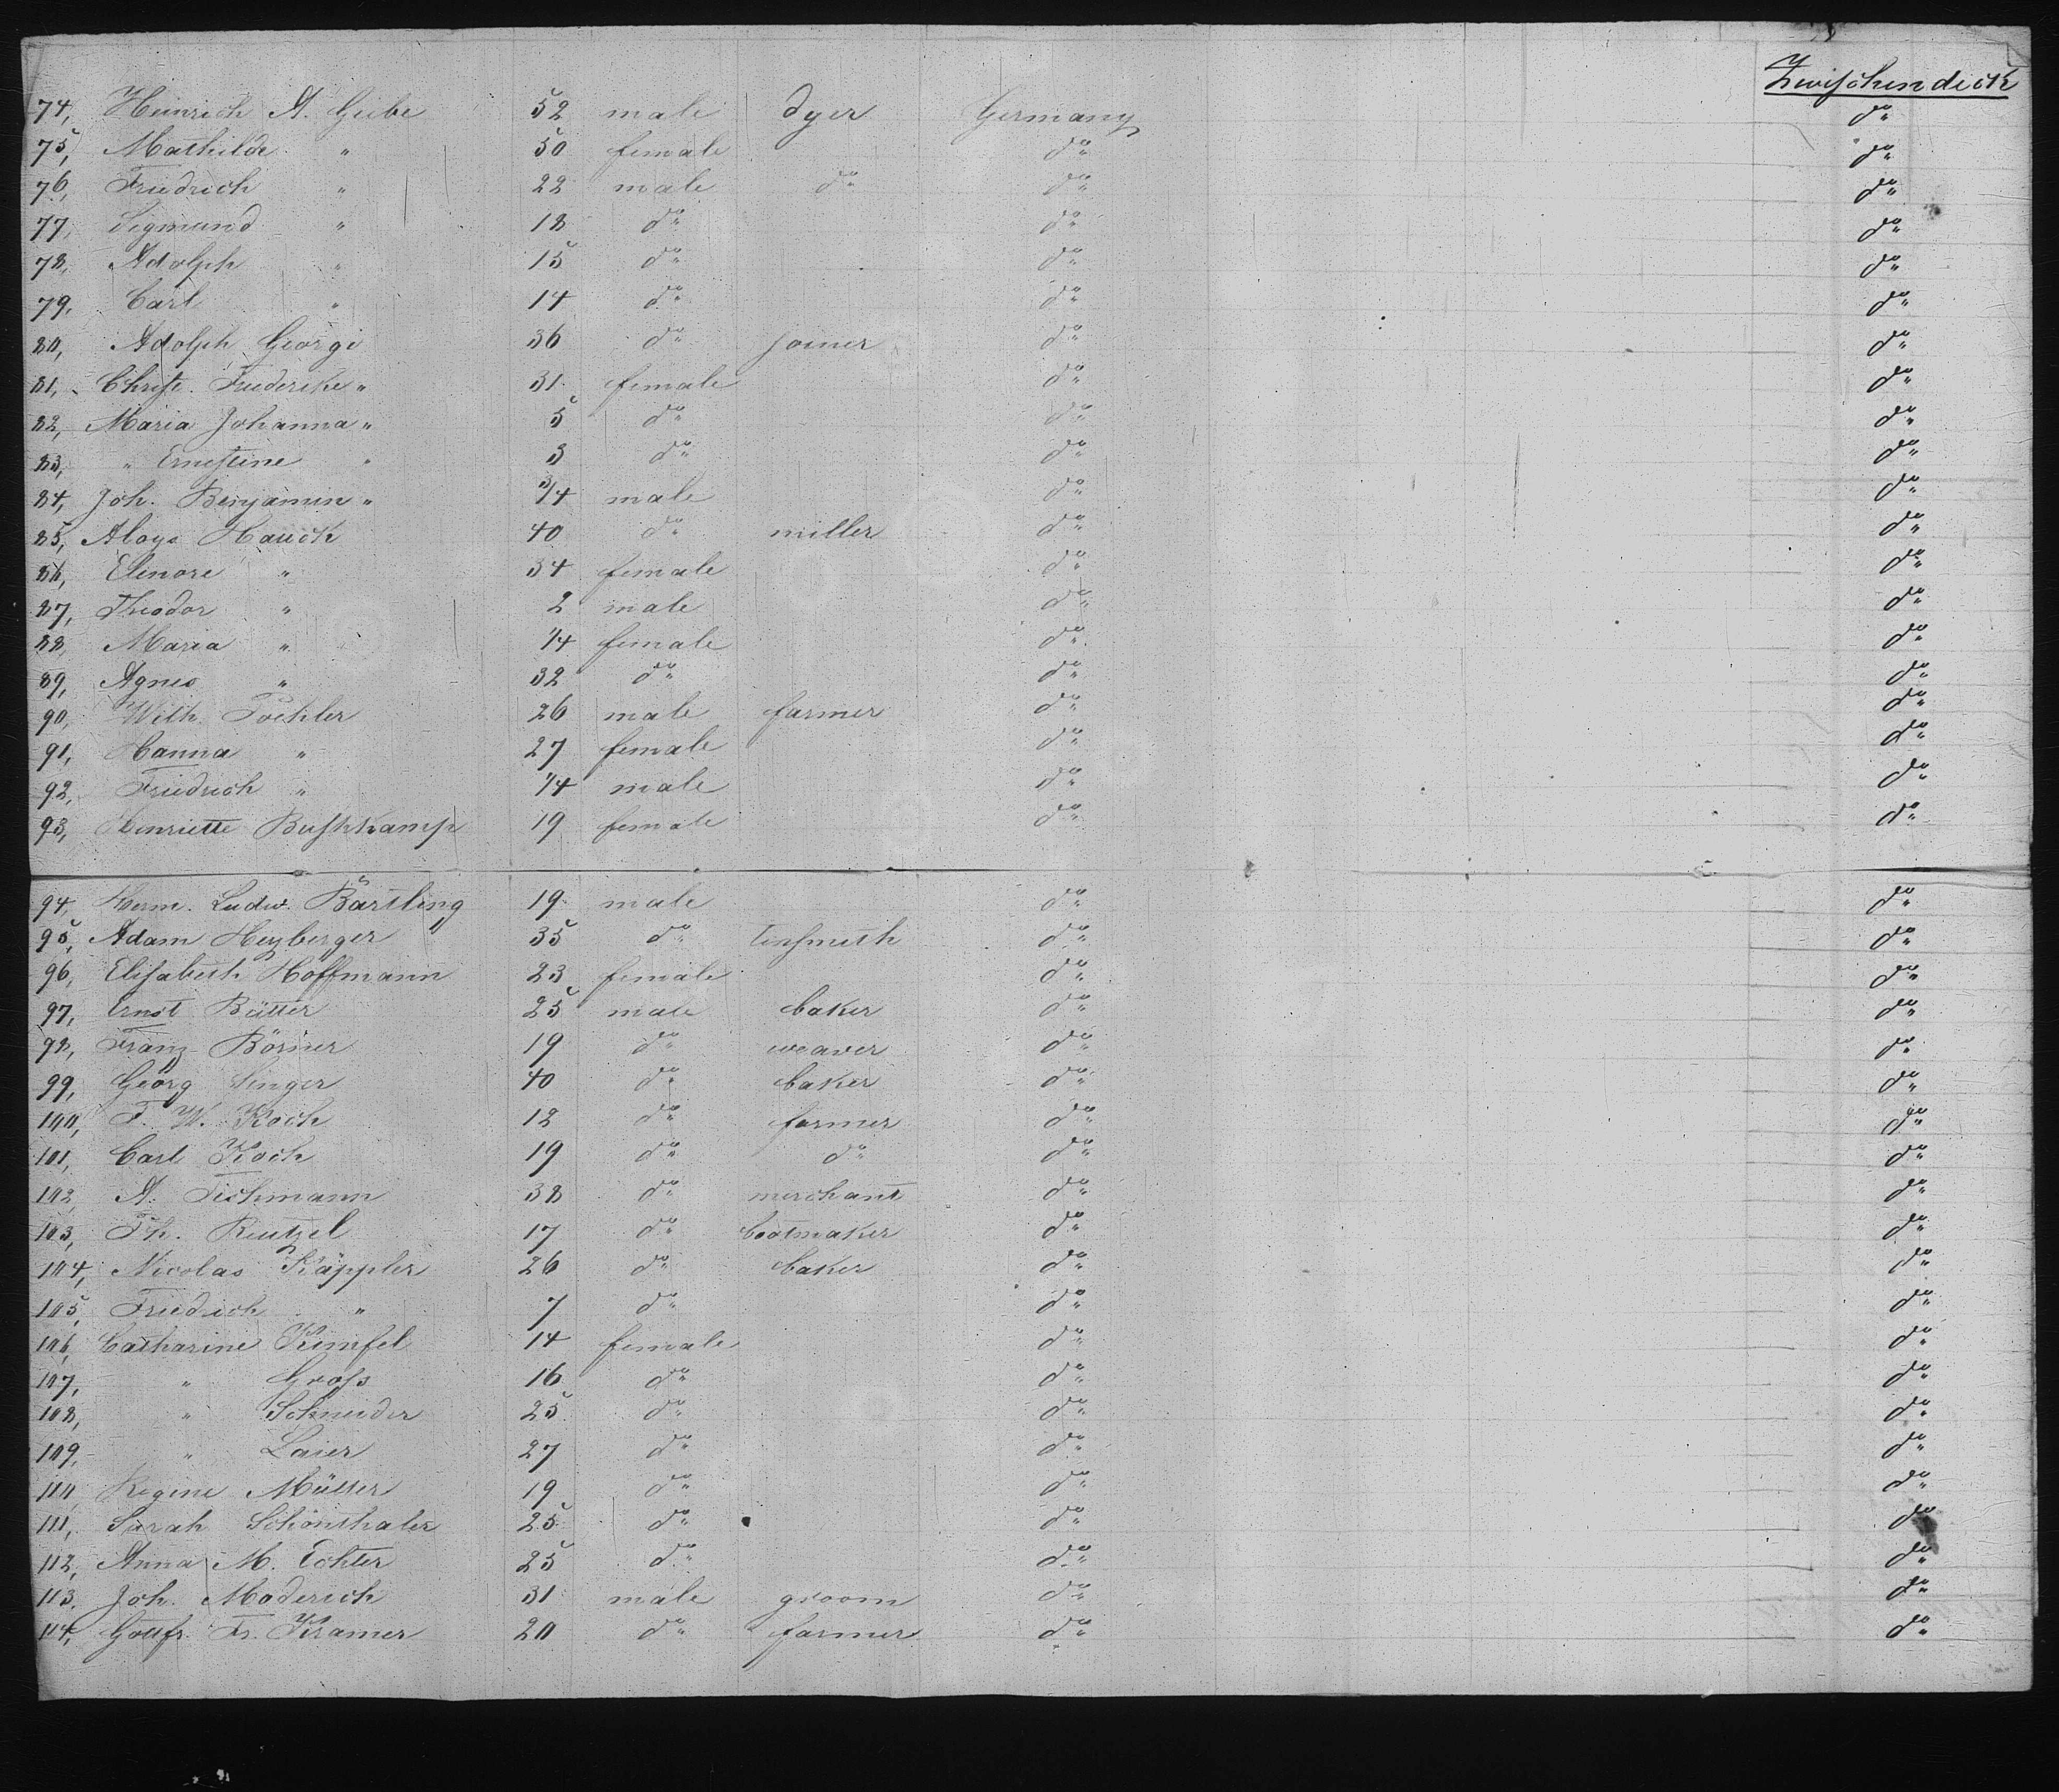 Zwischendeck
74, Heinrich A. Geibe 52 male dyer Germany do
75, Mathilde " 50 female do do
76, Friedrich " 22 male do do do
77, Sigmund " 18 do do do
78, Adolph " 15 do do do
79, Carl " 14 do do do
80, Adolph Georgi 36 do joiner do do
81, Christ. Friederike " 31 female do do
82, Maria Johanna " 5 do do do
83, " Ernestine " 3 do do do
84, Joh. Benjamin " 3/4 male do do
85, Aloys Hauck 40 do miller do do
86, Elenore " 34 female do do
87, Theodor " 2 male do do
88, Maria " 1/4 female do do
89, Agnes " 32 do do do
90, Wilh. 26 male farmer do do
91, Hanna " 27 female do do
92, Friedrich " 1/4 male do do
93, Henriette Buschkamp 19 female do do
94, Herm. Ludw. Bartling 19 male do do
95, Adam Heyberger 35 do tinsmith do do
96, Elisabeth Hoffmann 23 female do do
97, Ernst 25 male baker do do
98, Franz Börner 19 do weaver do do
99, Georg Singer 40 do baker do do
100, F. W. Koch 18 do farmer do do
101, Carl Koch 19 do do do do
102, A. 38 do merchant do do
103, Th. Reutzel 17 do bootmaker do do
104, Nicolas Käppler 26 do baker do do
105, Friedrich " 7 do do do
106, Catharine Kimfel 14 female do do
107, " Gross 16 do do do
108, " Schneider 25 do do do
109, " Laier 27 do do do
110, Regine Müller 19 do do do
111, Sarah Schönthaler 25 do do do
112, Anna M. Echter 25 do do do
113, Joh. Moderich 31 male groom do do
114, Gottfr. Fr. Kramer 20 do farmer do do